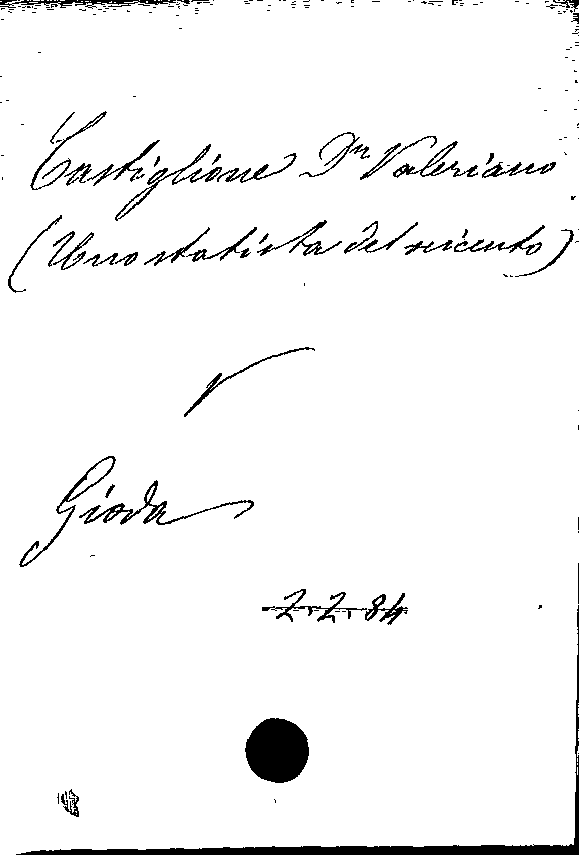 Castiglione Dn Valeriano
(Uno statista del seicento)
V
Gioda
2.2.84